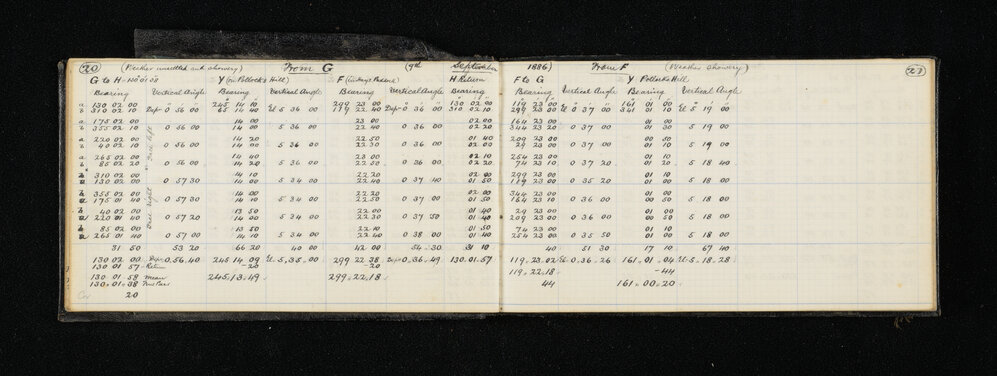 20 (Weather unsettled and showery) From G 9th September
G to H = 130 01 08 Y (on Pollock's Hill) F H Return
Bearing Vertical Angle Bearing Vertical Angle Bearing Vertical Angle Bearing
a 130 02 00 245 14 10 299 23 00 130 02 00
b 310 02 10 Dep 0 56 00 65 14 40 El 5 36 00 119 22 40 Dep 0 36 00 310 02 10
a 175 02 00 14 00 23 00 02 00
b 355 02 10 0 56 00 14 00 5 36 00 22 40 0 36 00 02 20
a 220 02 00 14 20 22 50 01 40
b 40 02 10 0 56 00 14 00 5 36 00 22 30 0 36 00 02 00
a 265 02 00 14 40 23 00 02 10
b 85 02 20 0 56 00 14 20 5 36 00 22 40 0 36 00 02 20
Dial left
b 310 02 00 14 10 22 20 02 00
a 130 02 00 0 57 30 14 00 5 34 00 22 40 0 37 40 01 50
b 355 02 00 14 00 22 20 02 00
a 175 01 40 0 57 30 14 00 5 34 00 22 00 0 37 00 01 50
b 40 02 00 13 50 22 00 01 40
a 220 01 40 0 57 20 14 00 5 34 00 22 30 0 37 50 01 40
b 85 02 00 13 50 22 10 01 50
a 265 01 40 0 57 00 14 00 5 34 00 22 40 0 38 00 01 40
Dial right
31 50 53 20 66 20 40 00 42 00 54 30 31 10
130 02 00 Dep 0.56.40 245 14 09 El 5.35.00 299 22 38 Dep 0.36.49 130.01.57
130 01 57 Return -20 -20
130 01 58 Mean 245.13.49 299.22.18
130.01.38
20
1886) From F (Weather Showery) 21
F to G Y Pollock's Hill
Bearing Vertical Angle Bearing Vertical Angle
119 23 00 161 01 00
299 23 00 El 0 37 00 341 01 10 El 5 19 00
164 23 00 01 00
344 23 20 0 37 00 01 30 5 19 00
209 23 00 00 50
29 23 00 0 37 00 01 10 5 19 00
254 23 00 01 10
74 23 10 0 37 20 01 20 5 18 40
299 23 00 01 10
119 23 00 0 35 20 01 00 5 18 00
344 23 00 01 00
164 23 10 0 36 00 01 00 5 18 00
29 23 00 01 00
209 23 00 0 36 00 00 50 5 18 00
74 23 00 01 10
254 23 00 0 35 50 01 00 5 18 00
40 51 30 17 10 67 40
119.23.02 El 0.36.26 161.01.04 El 5.18.28
119.22.18 -44
44 161.00.20